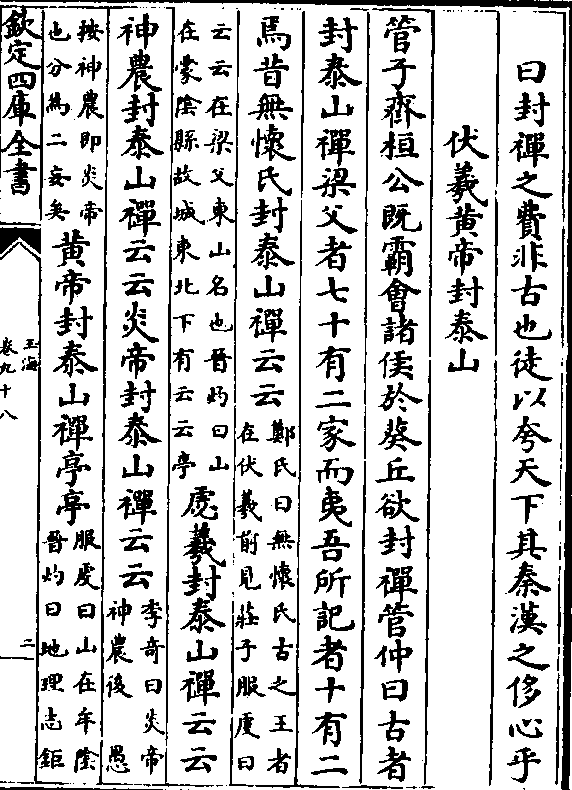 曰封禪之費非古也徒以夸天下其秦漢之侈心乎
伏羲黄帝封泰山
管子齊桓公既霸會諸侯於葵丘欲封禪管仲曰古者
封泰山禪梁父者七十有二家而夷吾所記者十有二
焉昔無懷氏封泰山禪云云鄭氏曰無懷氏古之王者在伏羲前見莊子服䖍曰
云云在梁父東山名也晉灼曰山在蒙隂縣故城東北下有云云亭虙羲封泰山禪云云
神農封泰山禪云云炎帝封泰山禪云云李奇曰炎帝神農後 愚
按神農即炎帝也分為二妄矣黄帝封泰山禪亭亭服䖍曰山在牟隂晉灼曰地理志鉅
欽定四庫全書
玉海
卷九十八
二